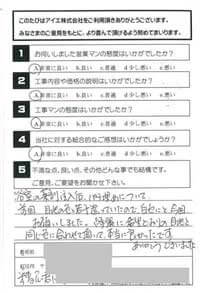 このたびはアイエ株式会社をご利用頂きありがとうございます。
みなさまのご意見をもとに、より喜んで頂けるよう努めてまいります。
1 お伺いしました営業マンの態度はいかがでしたか？
A非常に良い b.良い c.普通 d.少し悪い e.悪い
2 工事内容や価格の説明はいかがでしたか？
A非常に良い b.良い c.普通 d.少し悪い e.悪い
3 工事マンの態度はいかがでしたか？
A非常に良い b.良い c.普通 d.少し悪い e.悪い
4 当社に対する総合的なご感想はいかがでしょうか？
A非常に良い b.良い c.普通 d.少し悪い e.悪い
5 不満な点、良い点、その他どんな事でも結構です。
ご意見、ご要望をお聞かせ下さい。
について
前回 目地の色が
お願いしました。
同じ色に合わせて頂いて、本当に良かったです
ありがとうございました